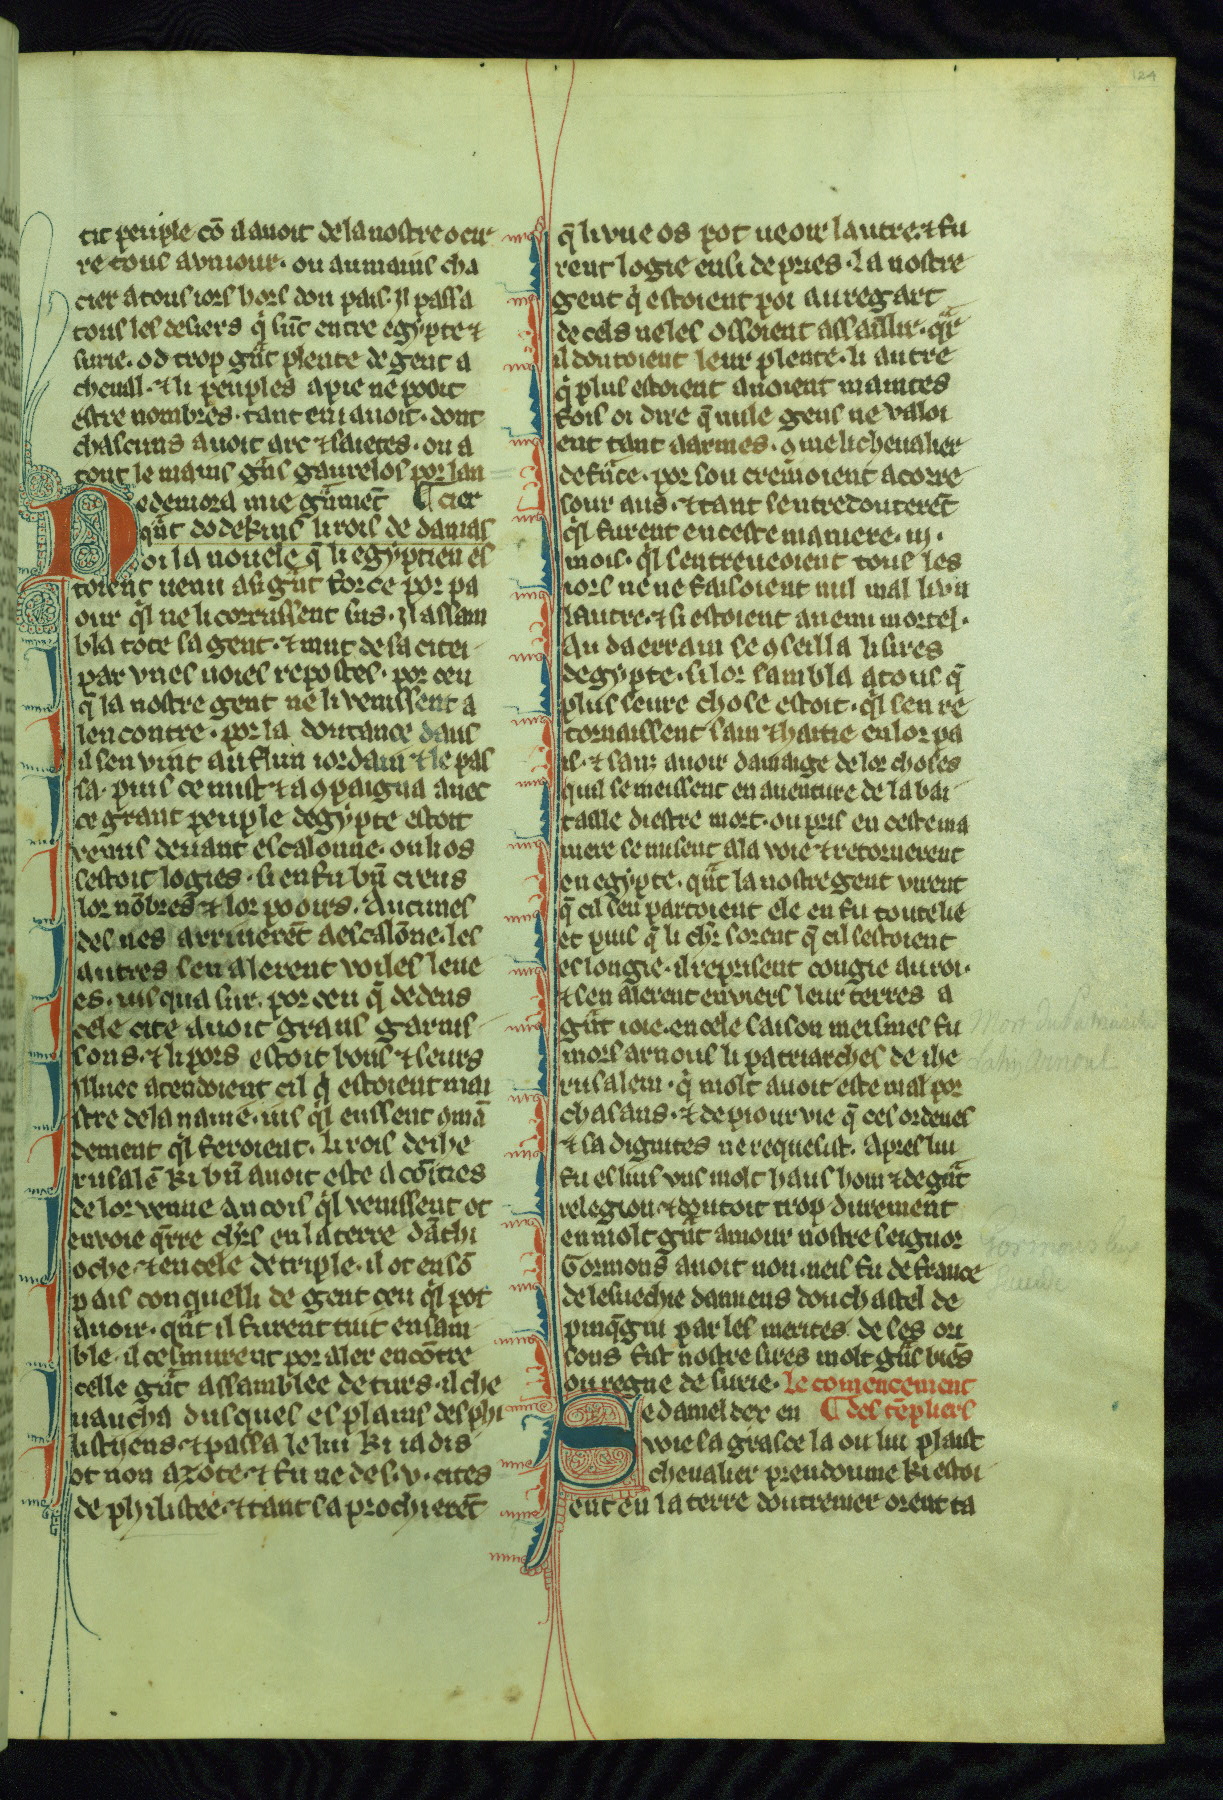 124
tit peuple cō il auoit de la nostre ocir
re tous a vn iour· ou au mains cha
cier a tous iors hors dou pais· Il passa
tous les desiers q̓ sūt entre egypte ⁊
surie· od trop gūt plente de gent a
cheual· ⁊ li peuples a pie ne pooit
estre nombres· tant en i auoit· dont
chascuns auoit arc ⁊ saietes· ou a
tout le mains gūs gaurelos por lan
e demora mie gūmēt ¶ cier
qūt dodekins li rois de damas
oi la nouele q̄ li egyptien es
toient uenu a si gūt force por pa
our qͥl ne li corrussent sus· Il assam
bla tote sa gent· ⁊ mut de sa citei·
par vnes uoies repostes· por ceu
q̄ la nostre gent ne li venissent a
lencontre· por la doutance daus
il sen vint au flun iordain ⁊ le pas
sa· puis ce mist ⁊ a ꝯpaigna auec
ce grant peuple degypte estoit
venus deuant escalonne· ou li os
sestoit logies· si en fu bn̄ creus
lor nōbres ⁊ lor poours· Aucunes
des nes arriuerēt a escalōne· les
autres sen alerent voiles leue
es· iusqua sur· por ceu q̄ dedens
cele cite auoit grans garnis
sons· ⁊ li pors estoit bons ⁊ seurs
Illuec atendoient cil q̓ estoient mai
stre de la nauie· ius qͥl eussent ꝯmā
dement qͥl feroient· li rois de ihe
rusalē ki bn̄ auoit este acōities
de lor venue ancois qͥl venissent ot
envoie q̄rre chͬs en la terre dāthi
oche· ⁊ en cele de triple· il ot en sō
pais conquelli de gent ceu qͥl pot
auoir· qūt il furent tuit ensam
ble· il ces murent por aler encōtre
celle gūt assamblee de turs· il che
uaucha dusques es plains des phi
listyens ⁊ passa le liu ki iadis
ot non azote· ⁊ fu ne des· v· cites
de philistee· ⁊ tant saprochierēt
q̄ li vne os pot ueoir lautre· ⁊ fu
rent logie ensi de pries· La nostre
gent q̓ estoient poi au regart
de cels ne les ossoient assaillir· qͣr
il doutoient leur plente· li autre
q̓ plus estoient auoient maintes
fois oi dire q̄ nule gens ne valoi
ent tant a armes· ꝯme li cheualier
de fūce· por sou cremoient a corre
sour aus· ⁊ tant sentredouterēt
qͥl furent en ceste maniere· iij·
mois· qͥl sentreueoient tous les
iors ne ne faisoient nul mal li vn
lautre· ⁊ si estoient anemi mortel·
Au daerrain se ꝯseilla li sires
degypte· si lor sambla a tous q̄
plus seure chose estoit· qͥl sen re
tornaissent sain ⁊ haitie en lor pa
is· ⁊ sans auoir damaige de lor choses
quil se meissent en auenture de la bai
taille diestre mort· ou pris en ceste ma
niere se misent a la voie ⁊ retornerent
en egypte· qūt la nostre gent virent
q̄ cil sen partoient ele en fu toute lie
et puis q̄ li chͬ sorent q̄ cil sestoient
eslongie· il reprisent congie au roi·
⁊ sen alerent enviers leur terres a
gūt ioie· en cele saison meismes fu
mors arnous li patriarches de ihe
rusalem· q̓ molt auoit este mal por
chasans· ⁊ de piour vie q̄ ces ordenes
⁊ sa dignites ne requesist· Apres lui
fu eslius vns molt haus hom ⁊ de gūt
relegion ⁊ doutoit trop durement
en molt gūt amour nostre seignor
Gormons auoit non· neis fu de france
de leuechie damiens dou chastel de
pinq̄gni par les merites de ses ori
sons fist nostre sires molt gūs biēs
ou regne de surie· Le comencement
e damelder en ¶ des tēpliers
voie sa grasce la ou lui plaist
cheualier preudoume ki estoi
ent en la terre doutremer orent ta